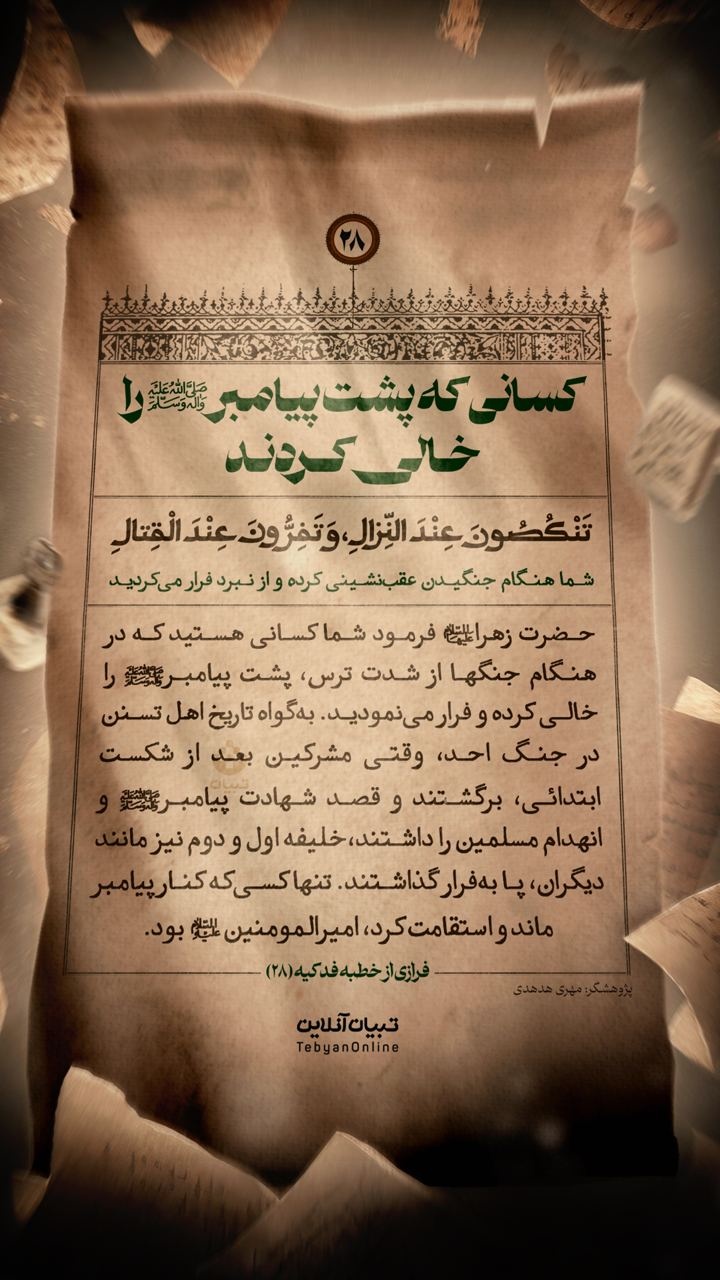 ۲۸
کسانی که پشت پیامبر ﷺ را
خالی کردند
تَنْكُصُونَ عِنْدَ النِّزالِ، وَ تَفِرُّونَ عِنْدَ الْقِتالِ
شما هنگام جنگیدن عقب‌نشینی کرده و از نبرد فرار می‌کردید
حضرت زهرا فرمود شما کسانی هستید که در
هنگام جنگها از شدت ترس، پشت پیامبر را
خالی کرده و فرار می‌نمودید. به‌گواه تاریخ اهل تسنن
در جنگ احد، وقتی مشرکین بعد از شکست
ابتدائی، برگشتند و قصد شهادت پیامبر و
انهدام مسلمین را داشتند، خلیفه اول و دوم نیز مانند
دیگران، پا به‌فرار گذاشتند. تنها کسی‌که کنار پیامبر
ماند و استقامت کرد، امیرالمومنین بود.
فرازی از خطبه فدکیه (۲۸)
پژوهشگر: مهری هدهدی
تبیان آنلاین
TebyanOnline